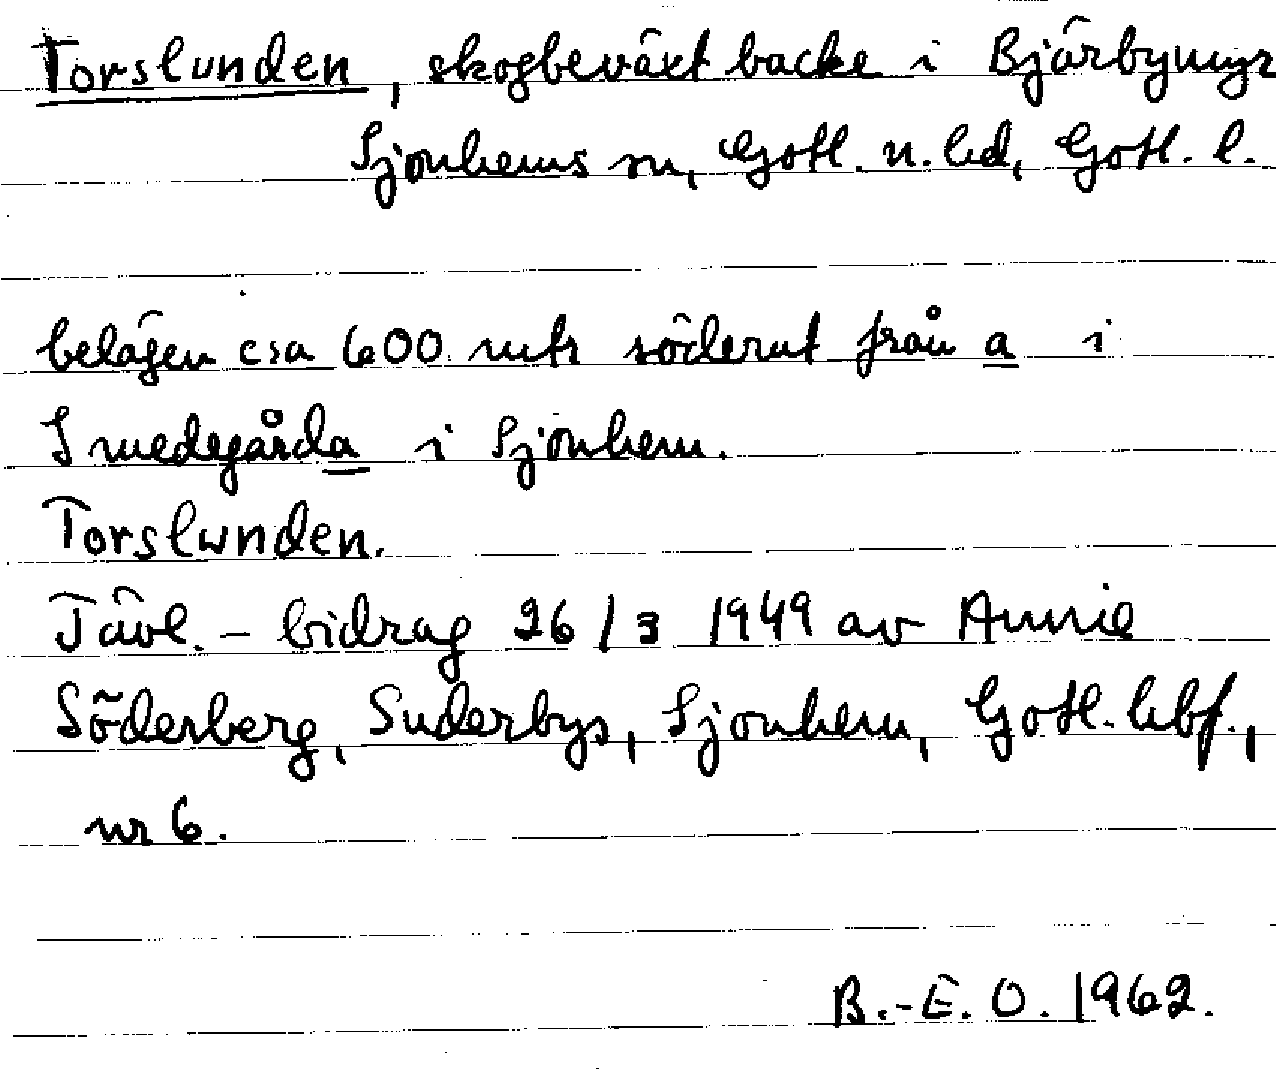 Torslunden, skogbeväxt backe i Bjärbymyr
Sjonhems sn, Gotl. n. hd, Gotl. l.
belägen c:sa 600 mtr söderut från a i
Smedegårda i Sjonhem.
Torslunden.
Tävl. - bidrag 26/3 1949 av Annie
Söderberg, Suderbys, Sjonhem, Gotl. hbf.,
nr 6.
B.-E. O. 1962.